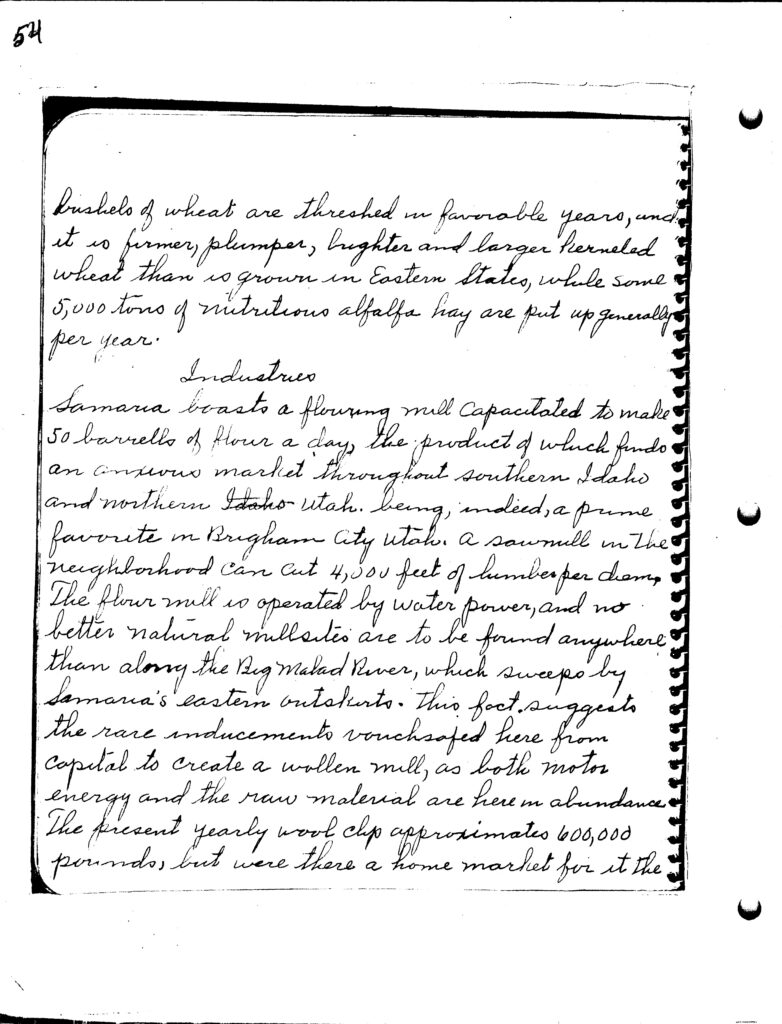 54
bushels of wheat are threshed in favorable years, and
it is firmer, plumper, brighter and larger kerneled
wheat than is grown in Eastern States, while some
5,000 tons of nutritious alfalfa hay are put up generally
per year.
Industries
Samaria boasts a flouring mill capacitated to make
50 barrells of flour a day, the product of which finds
an anxious market throughout southern Idaho
and northern Idaho Utah. being, indeed, a prime
favorite in Brigham City Utah. A sawmill in the
neighborhood can cut 4,000 feet of lumber per diem.
The flour mill is operated by water power, and no
better natural millsites are to be found anywhere
than along the Big Malad River, which sweeps by
Samaria's eastern outskirts. This fact suggests
the rare inducements vouchsafed here from
capital to create a wollen mill, as both motor
energy and the raw material are here in abundance
The present yearly wool clip approximates 600,000
pounds, but were there a home market for it the